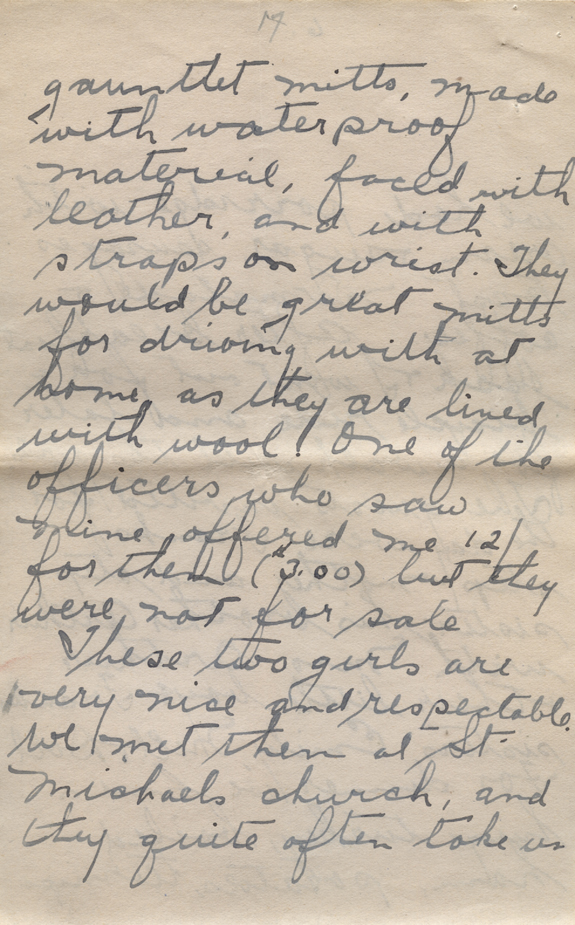 17
gauntlet mitts, made
with waterproof
material, faced with
leather, and with
straps on wrist. They
would be great mitts
for driving with at
home, as they are lined
with wool! One of the
officers who saw
mine, offered me 12/
for them ($3.00) but they
were not for sale
These two girls are
very nice and respectable.
We met them at St.
Michaels church, and
they quite often take us